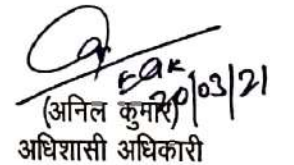 20/03/21
(अनिल कुमार)
अधिशासी अधिकारी